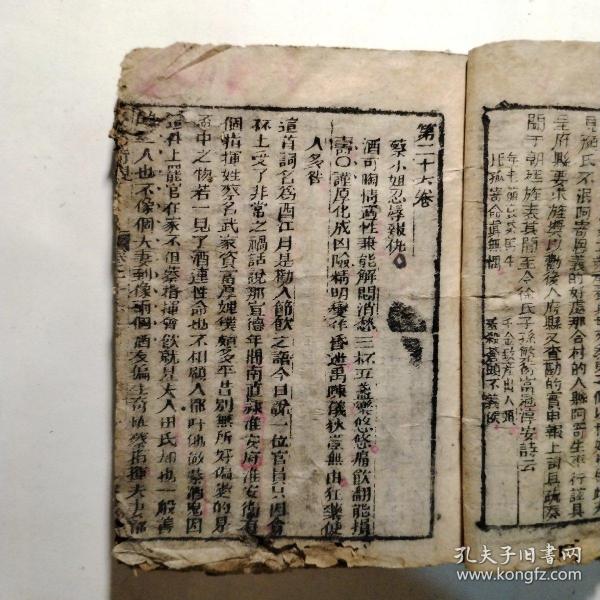 旌氏不泯阿寄恩義的好處那合村的人將阿寄生平行誼具
主府縣要求旌獎以勸後人府縣又查勘的實申報上司具疏奏
聞于朝廷旌表其閭至今徐氏子孫繁衍富冠淳安詩云
年老筋衰遜馬牛　千金致産出人頭
托孤寄命眞無愧　羞殺蒼頭不義侯
第二十六卷
蔡小姐忍辱報仇
酒可陶情適性兼能解悶消愁三杯五盞樂悠悠痛飲翻能損
壽〇謹厚化成凶險精明變作昏迷禹疎儀狄豈無由狂藥使
人多咎
這首詞名爲酉江月是勸人節飲之語今日說一位官員只因貪
杯上受了非常之禍話說那宣德年間南直隷淮安府淮安衛有
個指揮姓蔡名武家資富厚婢僕頗多平昔別無所好偏愛的是
盃中之物若一見了酒連性命也不相顧人都叫他做蔡酒鬼因
這件上罷官在家不但蔡指揮會飲就是夫人田氏却也一般善
酌二人也不像個夫妻到像兩個酒友偏生奇怪蔡指揮夫妻都
孔夫子旧书网
www.kongfz.com